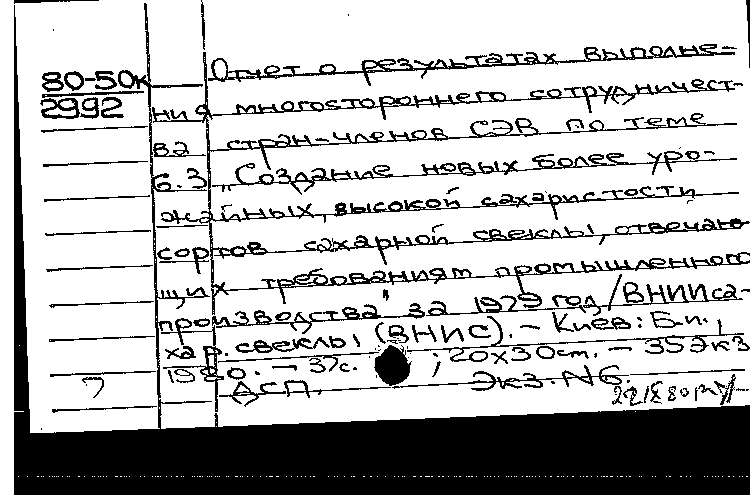 Отчет о результатах выполне=
80-50к
2992
ния многостороннего сотрудничест-
ва стран-членов СЭВ по теме
6.3 „Создание новых более уро-
жайных, высокой сахаристости
сортов сахарной свеклы, отвечаю
щих требованиям промышленного
производства" за 1979 год/ВНИИ са-
хар. свеклы (ВНИС). – Киев: Б.и.,
1980. – 37с. ; 20х30 cm. – 35 экз
ДСП. Экз. №6.